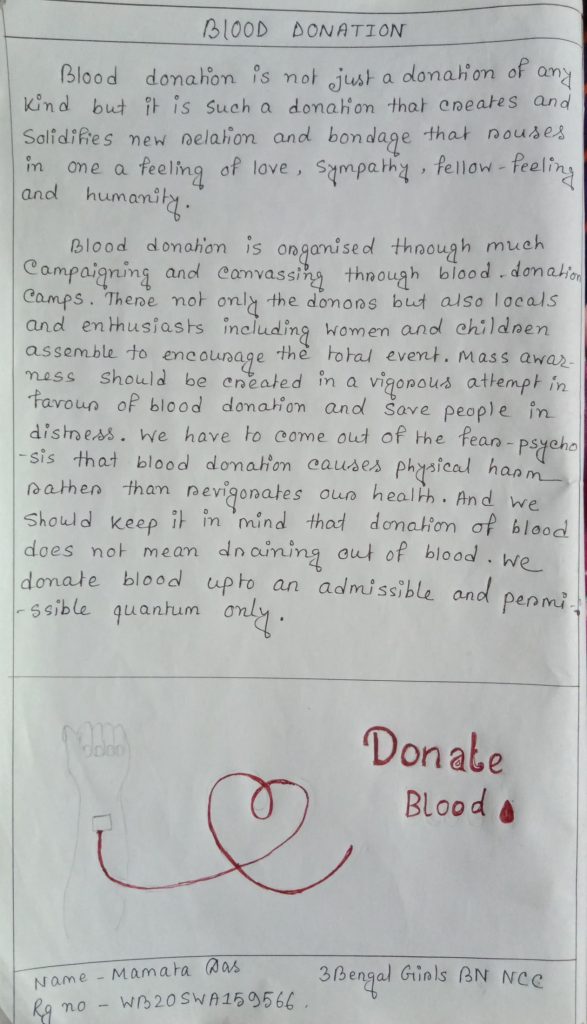 BLOOD DONATION
Blood donation is not just a donation of any
kind but it is such a donation that creates and
Solidifies new relation and bondage that rouses
in one a feeling of love, sympathy, fellow-feeling
and humanity.
Blood donation is organised through much
Campaigning and canvassing through blood-donation
Camps. There not only the donors but also locals
and enthusiasts including women and children
assemble to encourage the total event. Mass awar-
ness should be created in a vigorous attempt in
favour of blood donation and save people in
distress. We have to come out of the fear-psycho
-sis that blood donation causes physical harm
rather than revigorates our health. And we
should keep it in mind that donation of blood
does not mean draining out of blood. We
donate blood upto an admissible and permi-
-ssible quantum only.
Donate
Blood
Name - Mamata Das 3 Bengal Girls BN NCC
Rg no - WB20SWA159566.